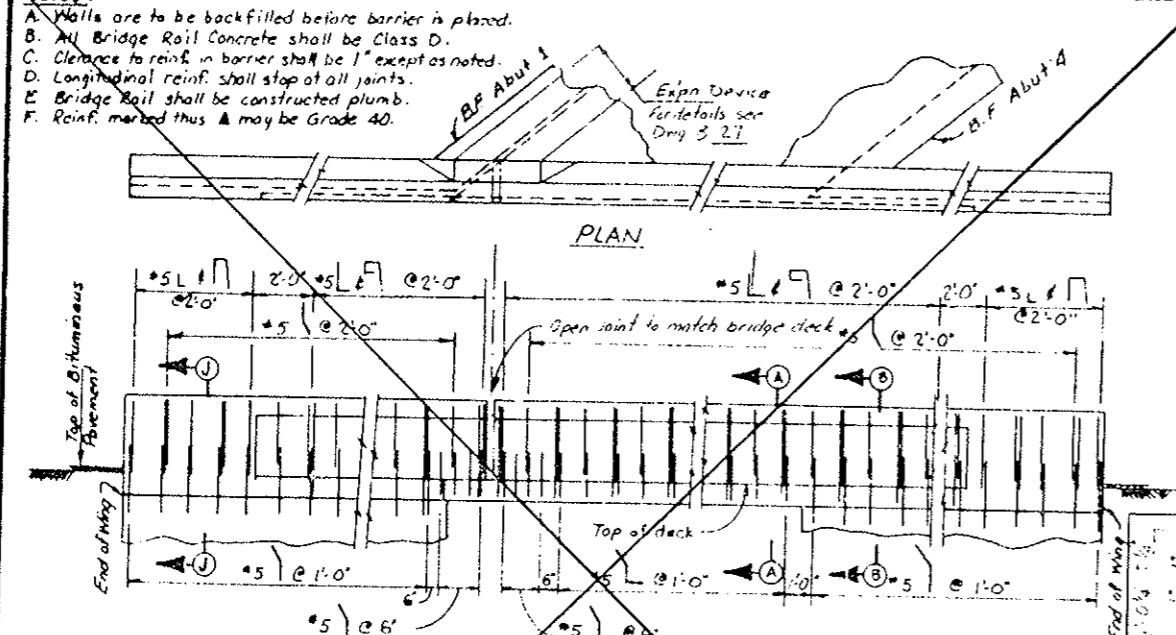 A. Walls are to be backfilled before barrier is placed.
B. All Bridge Rail Concrete shall be Class D.
C. Clearance to reinf. in barrier shall be 1" except as noted.
D. Longitudinal reinf. shall stop at all joints.
E Bridge Rail shall be constructed plumb.
F. Reinf. marked thus ▲ may be Grade 40.
B.F. Abut 1
Exp'n Device
For details see
Dwg B 27
B.F Abut 4
PLAN
#5 L & @2'-0"
2'-0"
#5 L & @2'-0"
#5 L & @ 2'-0"
2'-0"
#5 L & @2'-0"
#5 @ 2'-0"
Open joint to match bridge deck
#5 @ 2'-0"
Top of Bituminous
Pavement
J
A
B
End of Wing
Top of deck
J
#5 @ 1'-0"
6"
6"
#5 @ 1'-0"
A
1'-0"
B
#5 @ 1'-0"
End of Wing
#5 @ 6"
#5 @